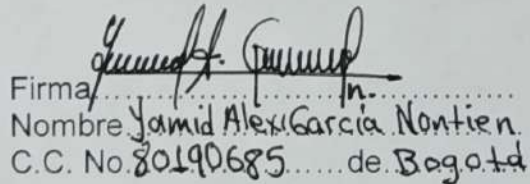 Firma
Nombre Yamid Alexi García Nontien
C.C. No. 80190685 de Bogotá